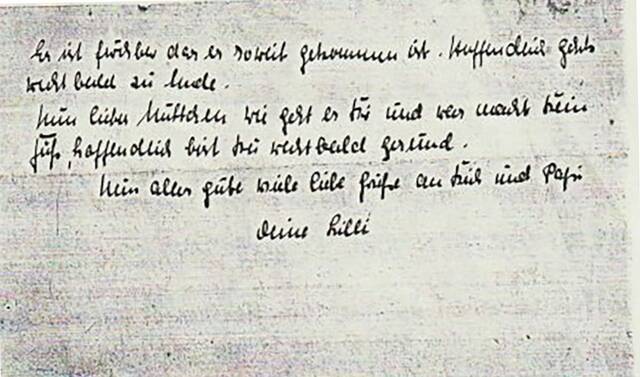 Es ist furchber das es soweit gekommen ist. Hoffendlich gehts
recht bald zu Ende.
Nun liebes Muttchen wie geht es Dir und was macht Dein
Fuß, hoffendlich bist Du recht bald gesund.
Nun alles gute viele liebe Grüße an Dich und Papi
Deine Lilli